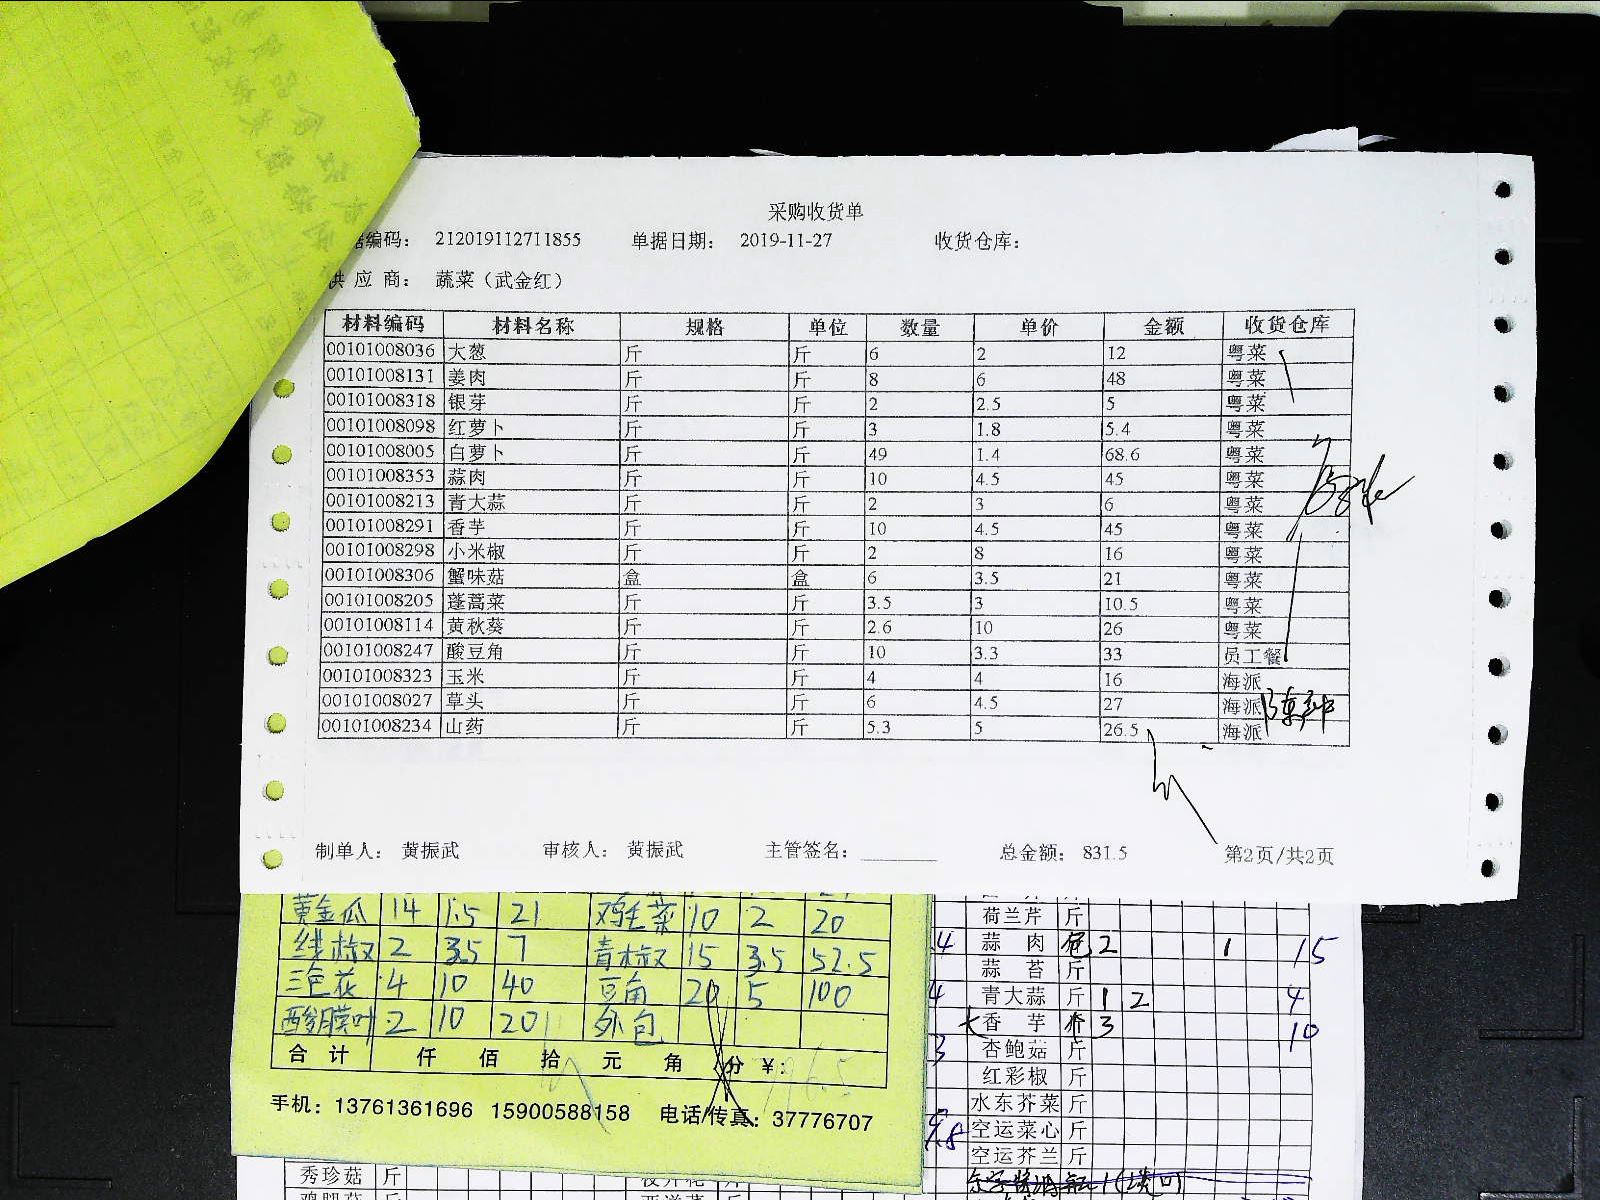 采购收货单
编码： 212019112711855 单据日期： 2019-11-27 收货仓库：
供 应 商： 蔬菜（武金红）
材料编码 材料名称 规格 单位 数量 单价 金额 收货仓库
00101008036 大葱 斤 斤 6 2 12 粤菜
00101008131 姜肉 斤 斤 8 6 48 粤菜
00101008318 银芽 斤 斤 2 2.5 5 粤菜
00101008098 红萝卜 斤 斤 3 1.8 5.4 粤菜
00101008005 白萝卜 斤 斤 49 1.4 68.6 粤菜
00101008353 蒜肉 斤 斤 10 4.5 45 粤菜
00101008213 青大蒜 斤 斤 2 3 6 粤菜
00101008291 香芋 斤 斤 10 4.5 45 粤菜
00101008298 小米椒 斤 斤 2 8 16 粤菜
00101008306 蟹味菇 盒 盒 6 3.5 21 粤菜
00101008205 蓬蒿菜 斤 斤 3.5 3 10.5 粤菜
00101008114 黄秋葵 斤 斤 2.6 10 26 粤菜
00101008247 酸豆角 斤 斤 10 3.3 33 员工餐
00101008323 玉米 斤 斤 4 4 16 海派
00101008027 草头 斤 斤 6 4.5 27 海派
00101008234 山药 斤 斤 5.3 5 26.5 海派
制单人： 黄振武 审核人： 黄振武 主管签名： 总金额： 831.5 第2页/共2页
黄金瓜 14 1.5 21 鸡毛菜 10 2 20
线椒 2 3.5 7 青椒 15 3.5 52.5
三色花 4 10 40 豆角 20 5 100
2 10 20 外包
合 计 仟 佰 拾 元 角 分 ¥： 796.5
手机：13761361696 15900588158 电话/传真：37776707
荷兰芹 斤
4 蒜 肉 包 2 1 15
蒜 苔 斤
4 青大蒜 斤 1 2 4
大 香 芋 个 3 10
3 杏鲍菇 斤
红彩椒 斤
水东芥菜 斤
空运菜心 斤
空运芥兰 斤
秀珍菇 斤